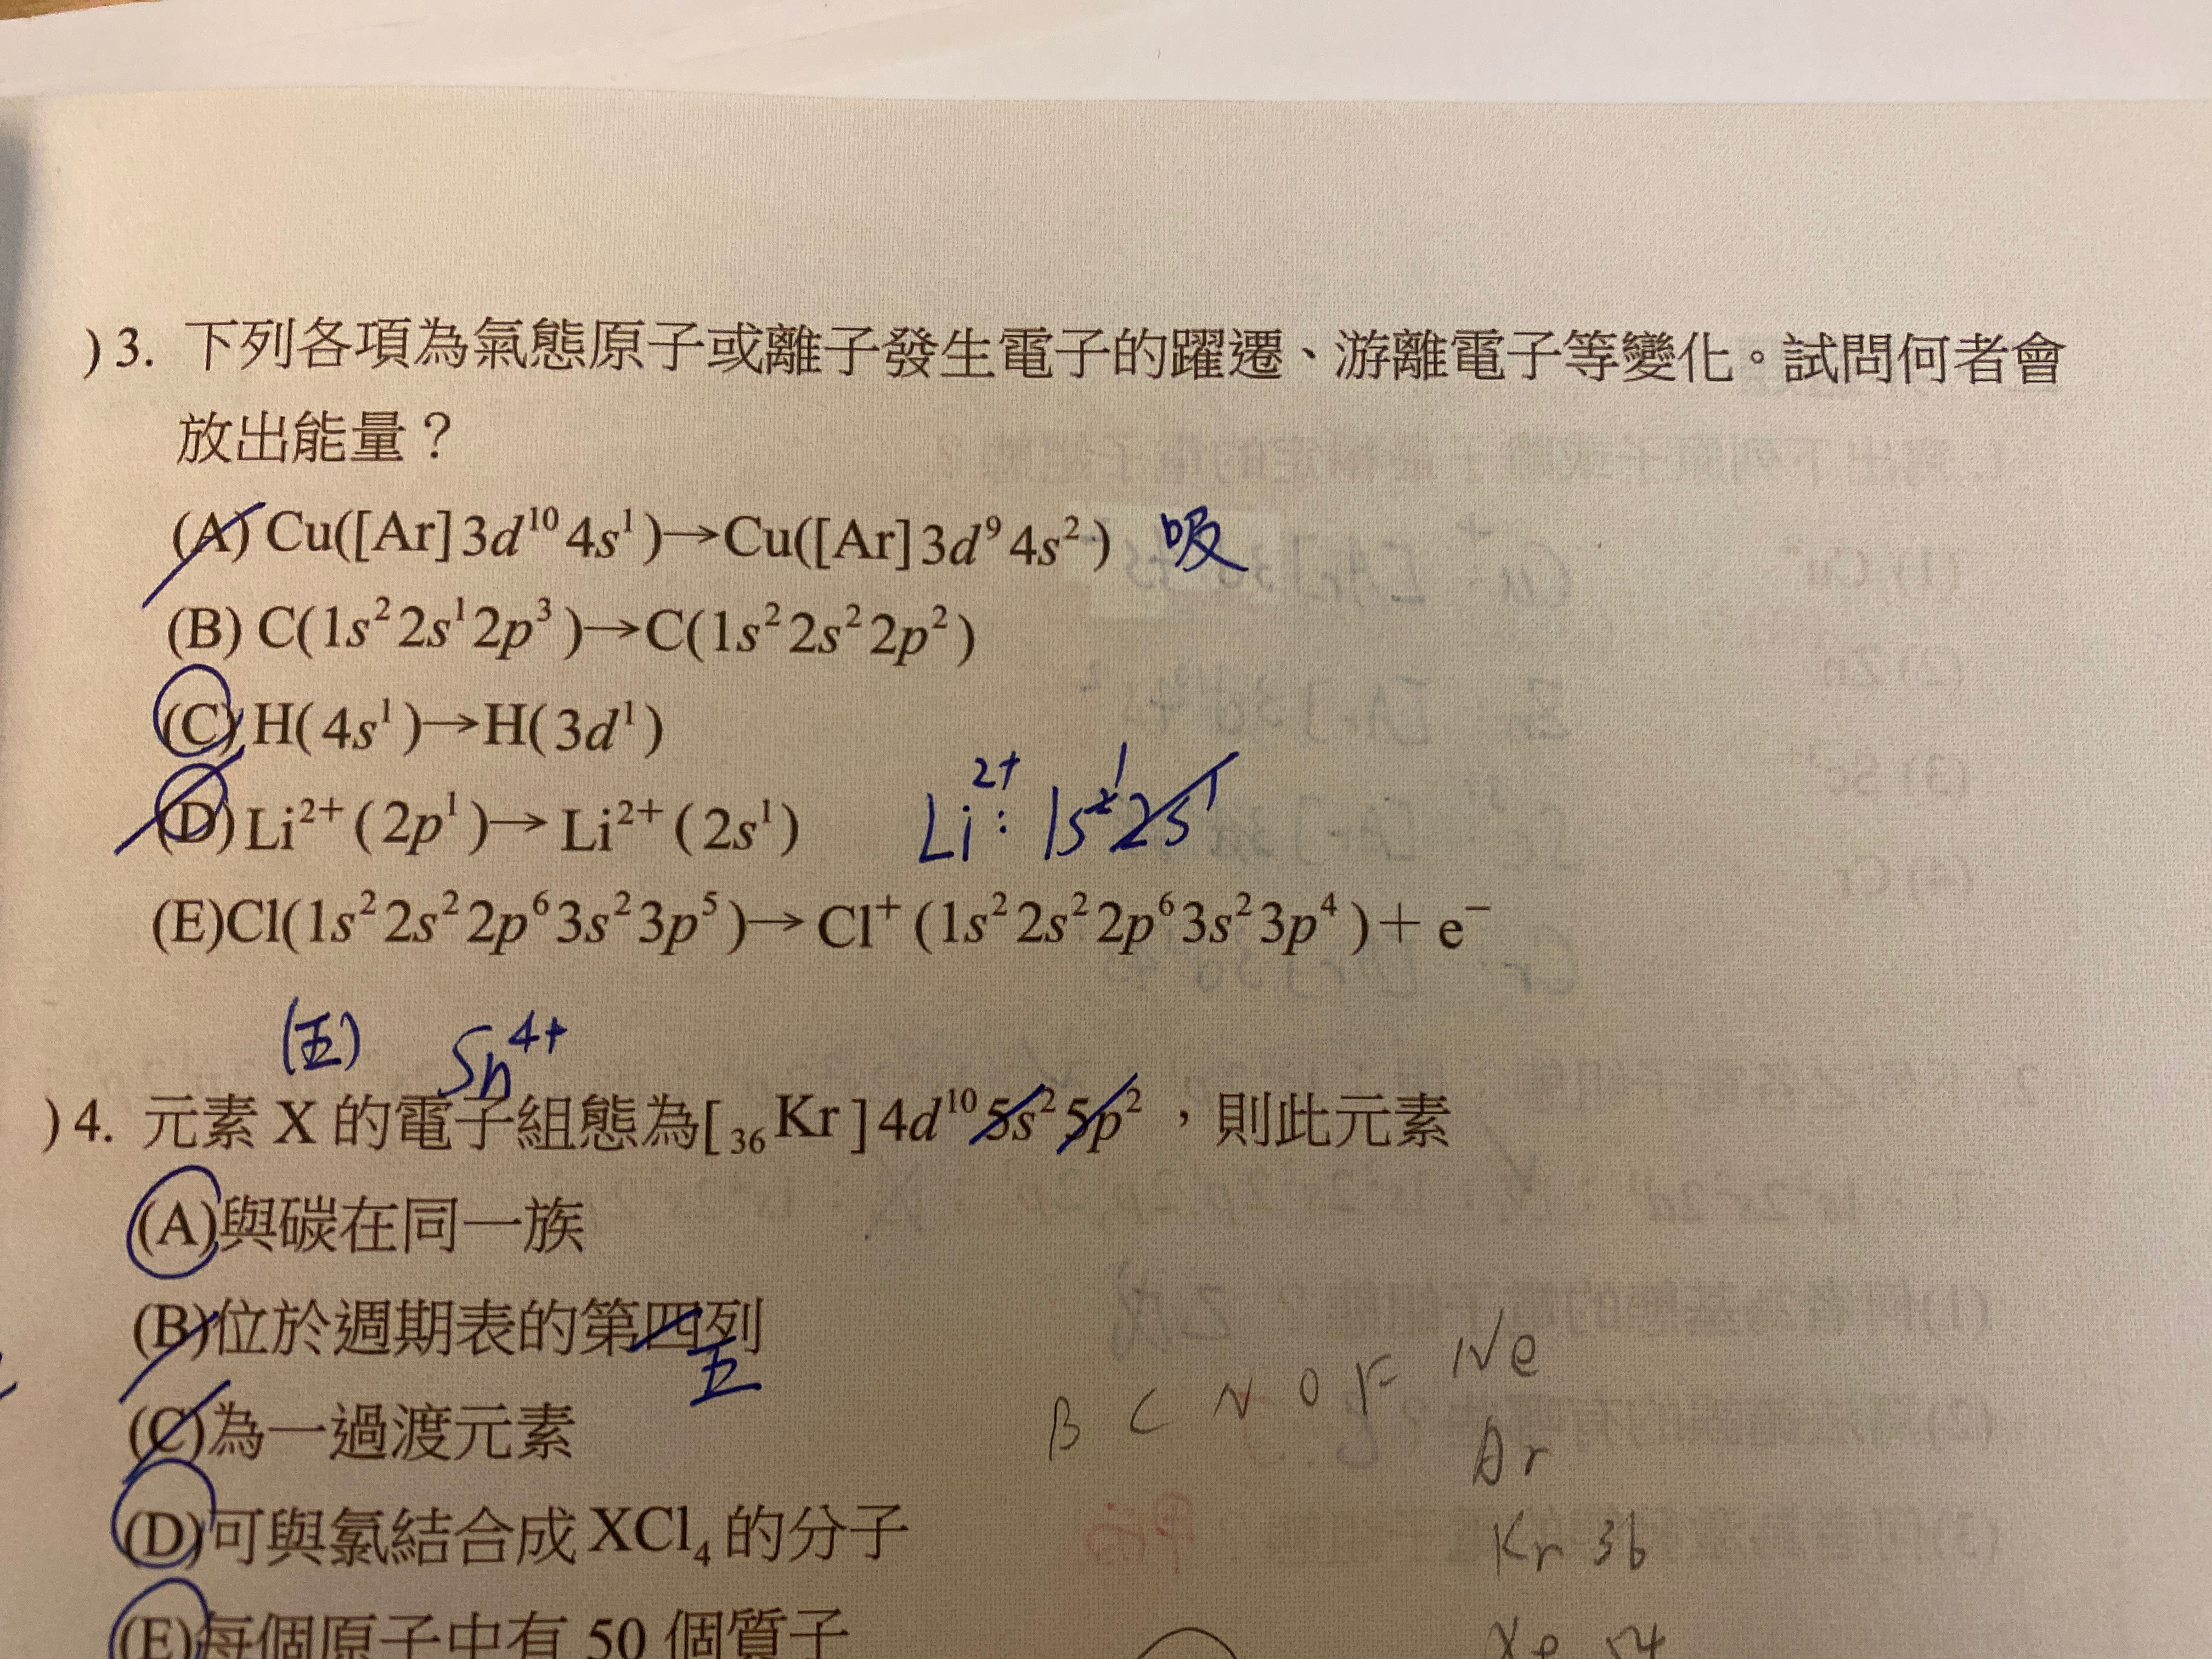 )3. 下列各項為氣態原子或離子發生電子的躍遷、游離電子等變化。試問何者會
放出能量？
(A) Cu([Ar]3d¹⁰4s¹)→Cu([Ar]3d⁹4s²) 吸
(B) C(1s²2s¹2p³)→C(1s²2s²2p²)
(C) H(4s¹)→H(3d¹)
(D) Li²⁺(2p¹)→Li²⁺(2s¹) Li²⁺: 1s¹2s¹
(E)Cl(1s²2s²2p⁶3s²3p⁵)→Cl⁺(1s²2s²2p⁶3s²3p⁴)+e⁻
(五) Sn⁴⁺
)4. 元素 X 的電子組態為[₃₆Kr]4d¹⁰5s²5p²，則此元素
(A)與碳在同一族
(B)位於週期表的第四列
五
(C)為一過渡元素
B C N O F Ne
Ar
(D)可與氯結合成 XCl₄ 的分子
Kr 36
(E)每個原子中有 50 個質子
Xe 54